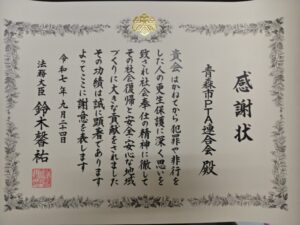 感謝状
青森市PTA連合会 殿
貴会はかねてから犯罪や非行を
した人の更生保護に深く思いを
致され社会奉仕の精神に徹して
その社会復帰と安全・安心な地域
づくりに大きな貢献をされました
その功績は誠に顕著であります
よってここに謝意を表します
令和七年九月二十四日
法務大臣 鈴木馨祐